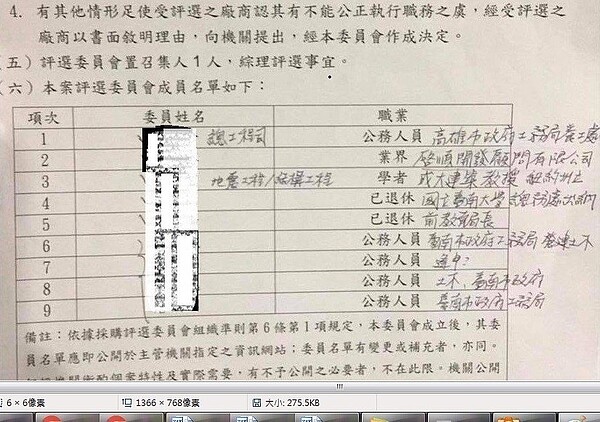 4. 有其他情形足使受評選之廠商認其有不能公正執行職務之虞,經受評選之
廠商以書面敘明理由,向機關提出,經本委員會作成決定。
(五)評選委員會置召集人1人,綜理評選事宜。
(六)本案評選委員會成員名單如下:
項次 委員姓名 職業
1 總工程司 公務人員 高雄市政府工務局養工處
2 業界 啓順開發顧問有限公司
3 地震工程/結構工程 學者 成大建築教授
4 已退休 國立臺南大學總務處
5 已退休 前教育局長
6 公務人員 臺南市政府工務局
7 公務人員
8 公務人員 臺南市政府
9 公務人員 臺南市政府工務局
備註:依據採購評選委員會組織準則第6條第1項規定,本委員會成立後,其委
員名單應即公開於主管機關指定之資訊網站;委員名單有變更或補充者,亦同。
個案特性及實際需要,有不予公開之必要者,不在此限。機關公開
6 × 6像素 1366 × 768像素 大小: 275.5KB